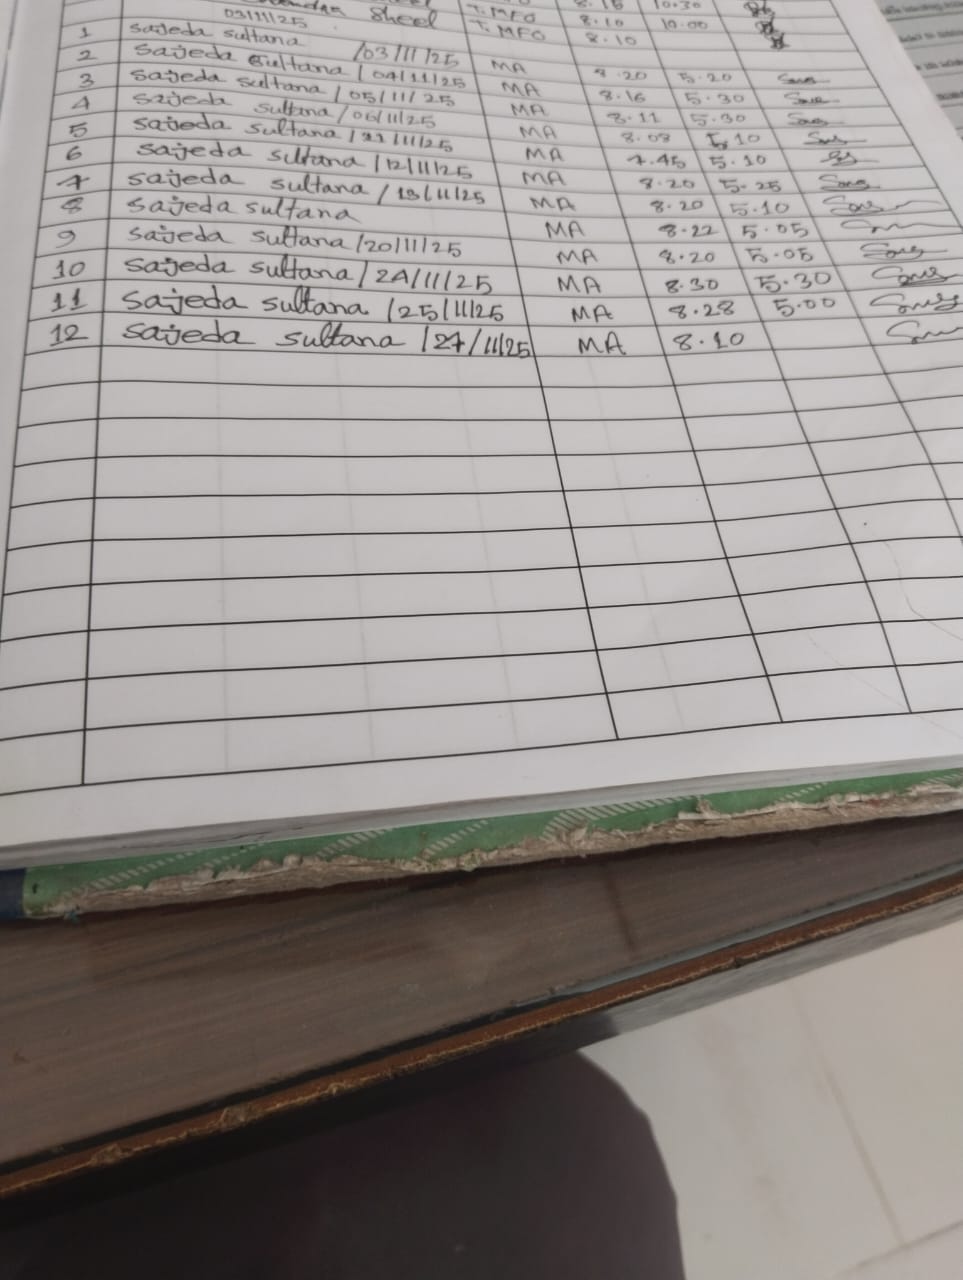 Sheel T. MFO 8.10 10.00
03/11/25
1 sajeda sultana T. MFO 8.10
2 sajeda sultana /03/11/25 MA 8.20 5.20
3 sajeda sultana /04/11/25 MA 8.16 5.30
4 sajeda sultana /05/11/25 MA 8.11 5.30
5 sajeda sultana /06/11/25 MA 8.08 5.10
6 sajeda sultana /11/11/25 MA 7.45 5.10
7 sajeda sultana /12/11/25 MA 8.20 5.25
8 sajeda sultana /13/11/25 MA 8.20 5.10
9 sajeda sultana MA 8.22 5.05
10 sajeda sultana /20/11/25 MA 8.20 5.05
11 sajeda sultana /24/11/25 MA 8.30 5.30
12 sajeda sultana /25/11/25 MA 8.28 5.00
sajeda sultana /27/11/25 MA 8.10